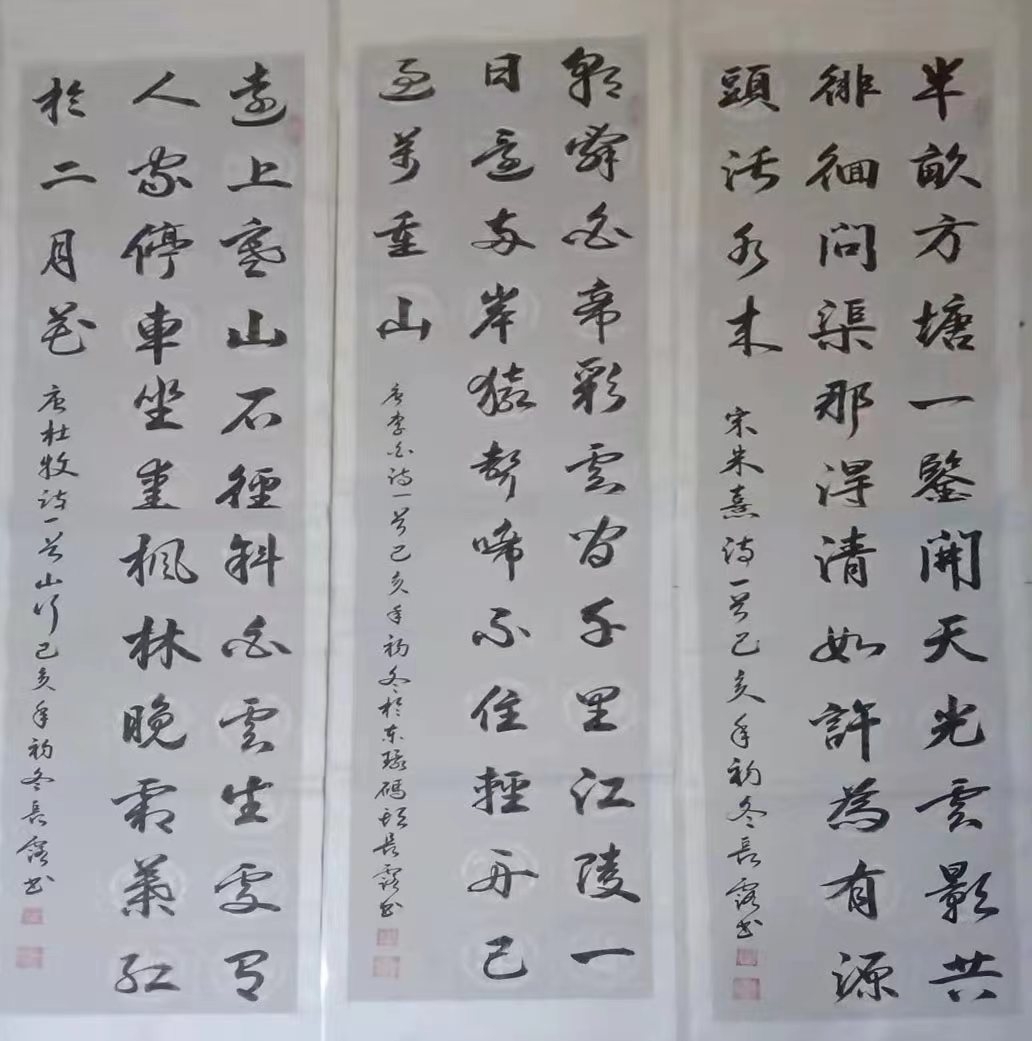 半畝方塘一鑒開天光雲影共
徘徊問渠那得清如許為有源
頭活水来
宋朱熹诗一首己亥年初冬長露书
朝辭白帝彩雲间千里江陵一
日還两岸猿聲啼不住輕舟已
過萬重山
唐李白诗一首己亥年初冬於东环碼頭長露书
遠上寒山石徑斜白雲生處有
人家停車坐愛楓林晚霜葉红
於二月花
唐杜牧诗一首山行己亥年初冬長露书